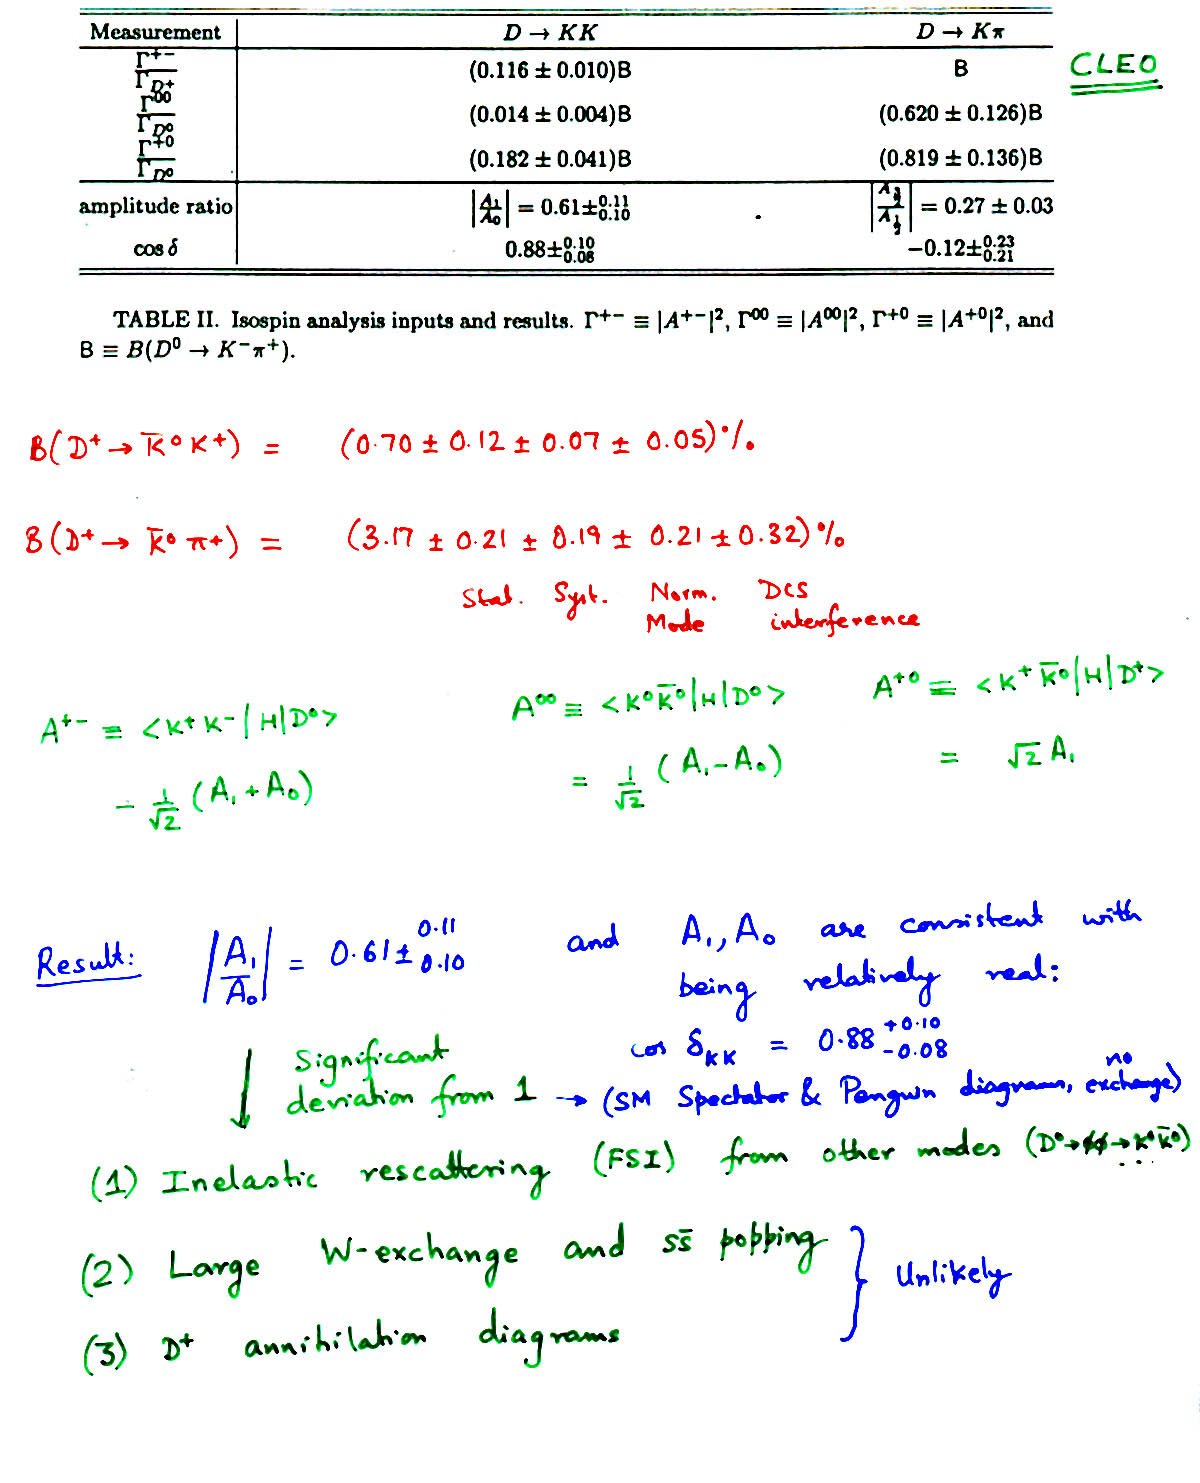 Measurement D → KK D → Kπ
Γ+−/ΓD+ (0.116 ± 0.010)B B CLEO
Γ00/ΓD0 (0.014 ± 0.004)B (0.620 ± 0.126)B
Γ+0/ΓD0 (0.182 ± 0.041)B (0.819 ± 0.136)B
amplitude ratio |A1/A0| = 0.61±0.11 0.10 |A3/2/A1/2| = 0.27 ± 0.03
cos δ 0.88±0.10 0.08 −0.12±0.23 0.21
TABLE II. Isospin analysis inputs and results. Γ+− ≡ |A+−|², Γ00 ≡ |A00|², Γ+0 ≡ |A+0|², and
B ≡ B(D⁰ → K⁻π⁺).
B(D⁺ → K̄⁰K⁺) = (0.70 ± 0.12 ± 0.07 ± 0.05)%
B(D⁺ → K̄⁰π⁺) = (3.17 ± 0.21 ± 0.19 ± 0.21 ± 0.32)%
Stat. Syst. Norm. DCS
Mode interference
A⁺⁻ ≡ <K⁺K⁻|H|D⁰> A⁰⁰ ≡ <K⁰K̄⁰|H|D⁰> A⁺⁰ ≡ <K⁺K̄⁰|H|D⁺>
− 1/√2 (A₁ + A₀) = 1/√2 (A₁ − A₀) = √2 A₁
Result: |A₁/A₀| = 0.61± 0.11 0.10 and A₁, A₀ are consistent with
being relatively real:
cos δKK = 0.88 +0.10 −0.08
Significant
deviation from 1 → (SM Spectator & Penguin diagrams, no exchange)
(1) Inelastic rescattering (FSI) from other modes (D⁰→ϕϕ→K⁰K̄⁰)
(2) Large W-exchange and ss̄ popping } Unlikely
(3) D⁺ annihilation diagrams